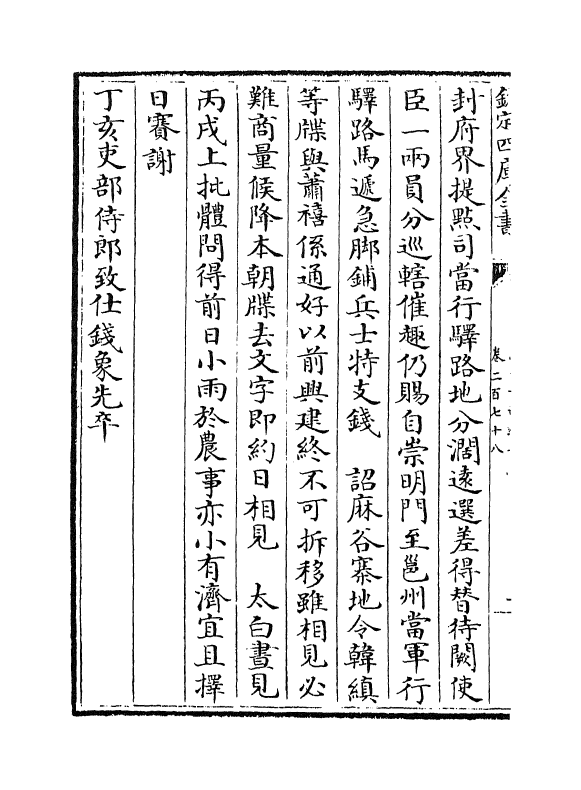 欽定四庫全書
卷二百七十八
封府界提點司當行驛路地分濶逺選差得替待闕使
臣一兩員分巡轄催趣仍賜自崇明門至邕州當軍行
驛路馬遞急脚鋪兵士特支錢　詔麻谷寨地令韓縝
等牒與蕭禧係通好以前興建終不可拆移雖相見必
難商量候降本朝牒去文字即約日相見　太白晝見
丙戌上批體問得前日小雨於農事亦小有濟宜且擇
日賽謝
丁亥吏部侍郎致仕錢象先卒